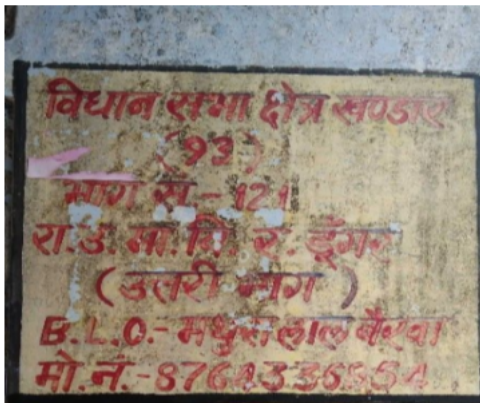 विधान सभा क्षेत्र खण्डार
(93)
भाग सं.- 121
रा.उ.मा.वि. र. डूँगर
(उत्तरी भाग)
B.L.O.- मथुरालाल बैरवा
मो.नं.-